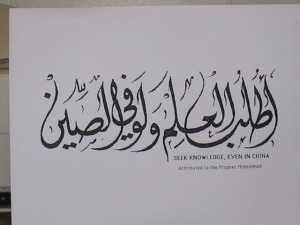 أطلب العلم ولو في الصين
SEEK KNOWLEDGE, EVEN IN CHINA
Attributed to the Prophet Mohammed